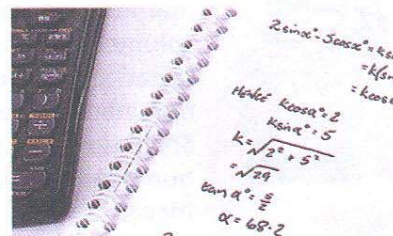 2sinx° - 5cosx° = ksi
= k(sin
= kcosα
Hence kcosα° = 2
ksinα° = 5
k = √2² + 5²
= √29
tan α° = 5/2
α = 68·2